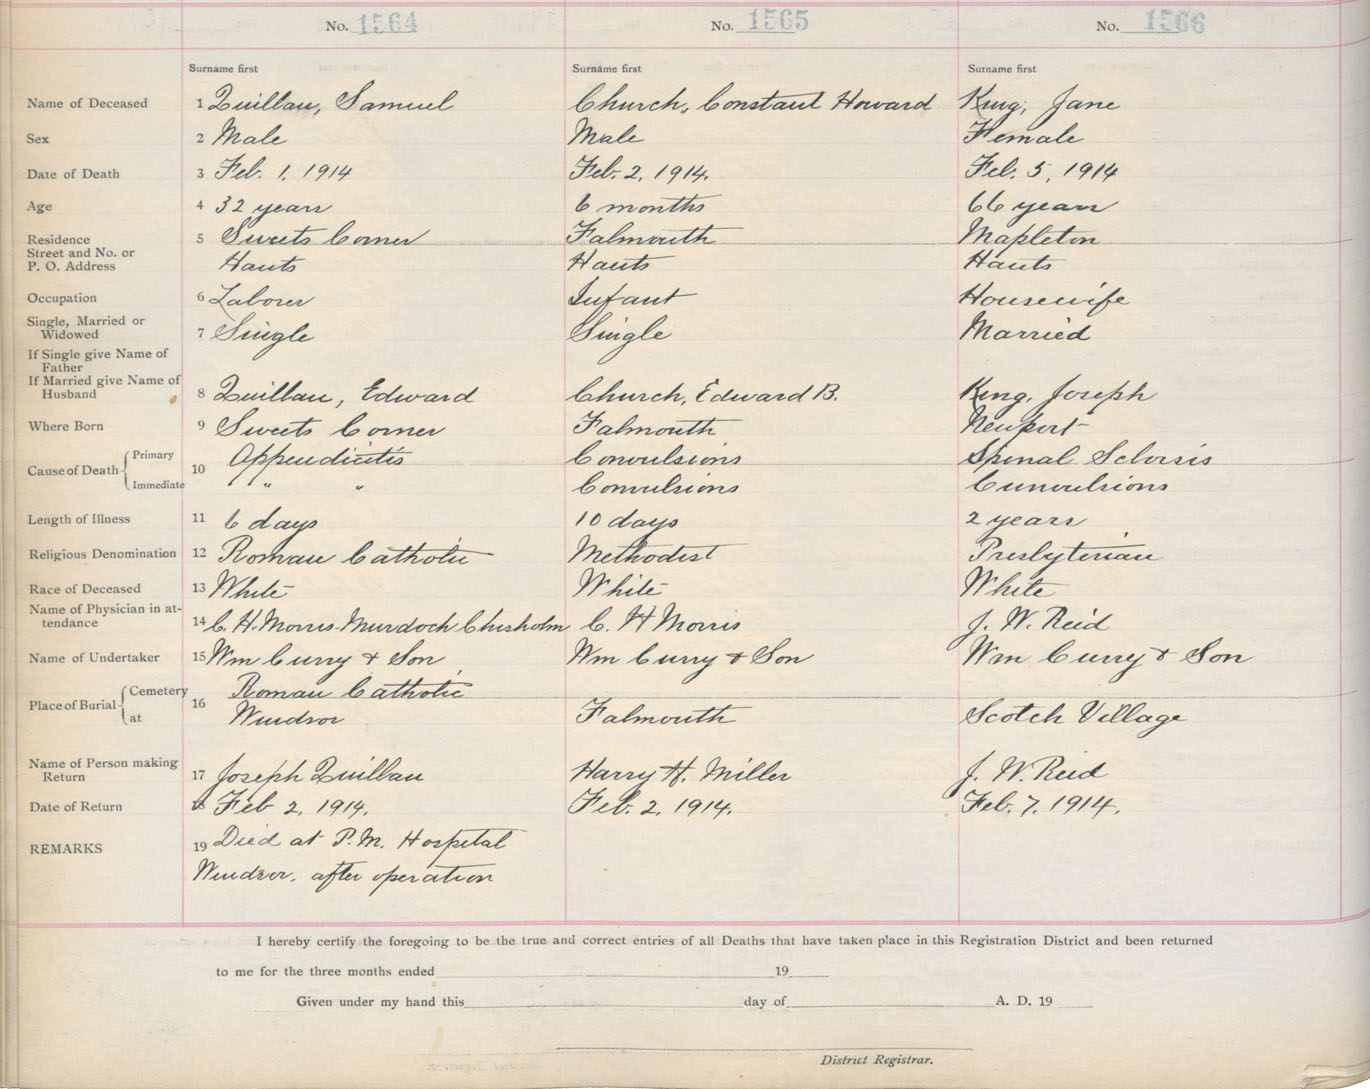 No. 1564 No. 1565 No. 1566
Surname first Surname first Surname first
Name of Deceased 1 Quillan, Samuel Church, Constant Howard King, Jane
Sex 2 Male Male Female
Date of Death 3 Feb. 1, 1914 Feb. 2, 1914. Feb. 5, 1914
Age 4 32 years 6 months 66 years
Residence 5 Sweets Corner Falmouth Mapleton
Street and No. or
P. O. Address Hants Hants Hants
Occupation 6 Laborer Infant Housewife
Single, Married or
Widowed 7 Single Single Married
If Single give Name of
Father
If Married give Name of
Husband 8 Quillan, Edward Church, Edward B. King, Joseph
Where Born 9 Sweets Corner Falmouth Newport
Cause of Death Primary 10 Appendicitis Convulsions Spinal Sclorsis
Immediate " " Convulsions Cunvulsions
Length of Illness 11 6 days 10 days 2 years
Religious Denomination 12 Roman Catholic Methodist Presbyterian
Race of Deceased 13 White White White
Name of Physician in at-
tendance 14 C. H. Morris. Murdoch Chisholm C. H Morris J. W. Reid
Name of Undertaker 15 Wm Curry & Son Wm Curry & Son Wm Curry & Son
Place of Burial Cemetery 16 Roman Catholic
at Windsor Falmouth Scotch Village
Name of Person making
Return 17 Joseph Quillan Harry H. Miller J. W. Reid
Date of Return 18 Feb 2, 1914. Feb. 2, 1914. Feb. 7, 1914.
REMARKS 19 Died at P.M. Hospital
Windsor. after operation
I hereby certify the foregoing to be the true and correct entries of all Deaths that have taken place in this Registration District and been returned
to me for the three months ended 19
Given under my hand this day of A. D. 19
District Registrar.